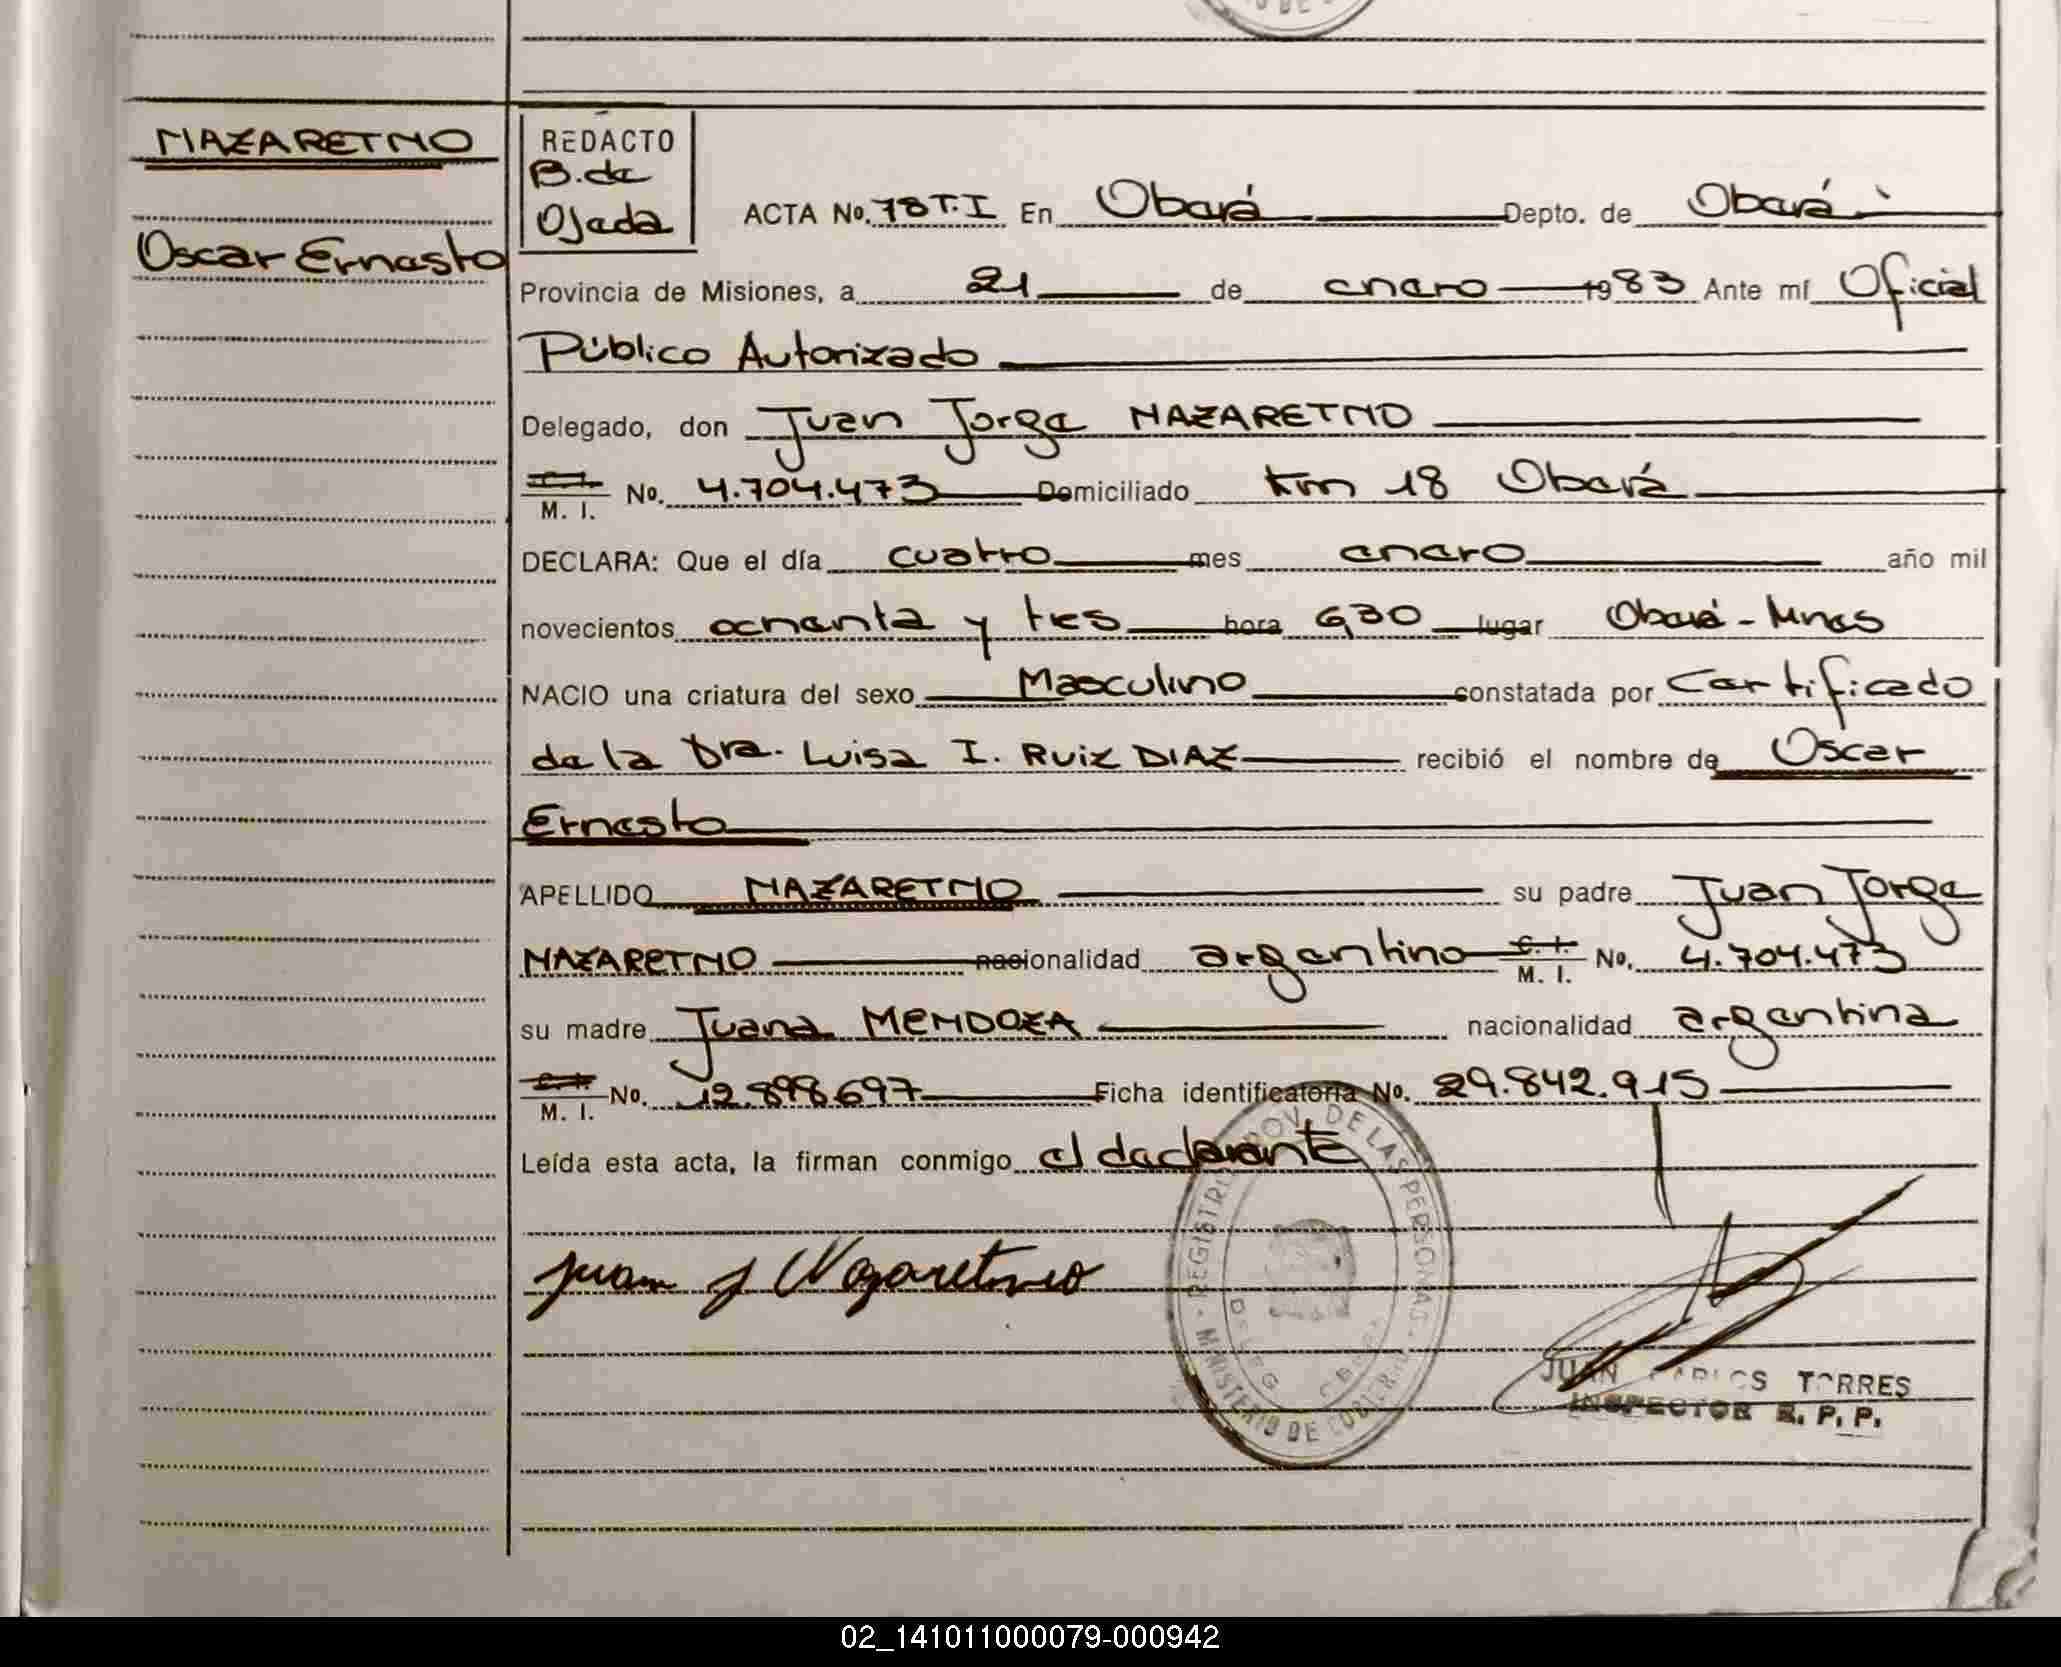 NAZARETNO
Oscar Ernesto
REDACTO
B. de
Ojeda
ACTA No. 78 T.I En Oberá Depto. de Oberá
Provincia de Misiones, a 21 de enero 1983 Ante mí Oficial
Público Autorizado
Delegado, don Juan Jorge NAZARETNO
C. I.
M. I. No. 4.704.473 Domiciliado Km 18 Oberá
DECLARA: Que el día cuatro mes enero año mil
novecientos ochenta y tres hora 6,30 lugar Oberá - Mnes
NACIO una criatura del sexo Masculino constatada por Certificado
de la Dra. Luisa I. RUIZ DIAZ recibió el nombre de Oscar
Ernesto
APELLIDO NAZARETNO su padre Juan Jorge
NAZARETNO nacionalidad argentino C. I. M. I. No. 4.704.473
su madre Juana MENDOZA nacionalidad argentina
C. I.
M. I. No. 12.898.697 Ficha identificatoria No. 29.842.915
Leída esta acta, la firman conmigo el declarante
Juan J Nazaretno
REGISTRO PROV. DE LAS PERSONAS
MINISTERIO DE GOBIERNO
DELEG OBERA
JUAN CARLOS TORRES
INSPECTOR R. P. P.
02_141011000079-000942